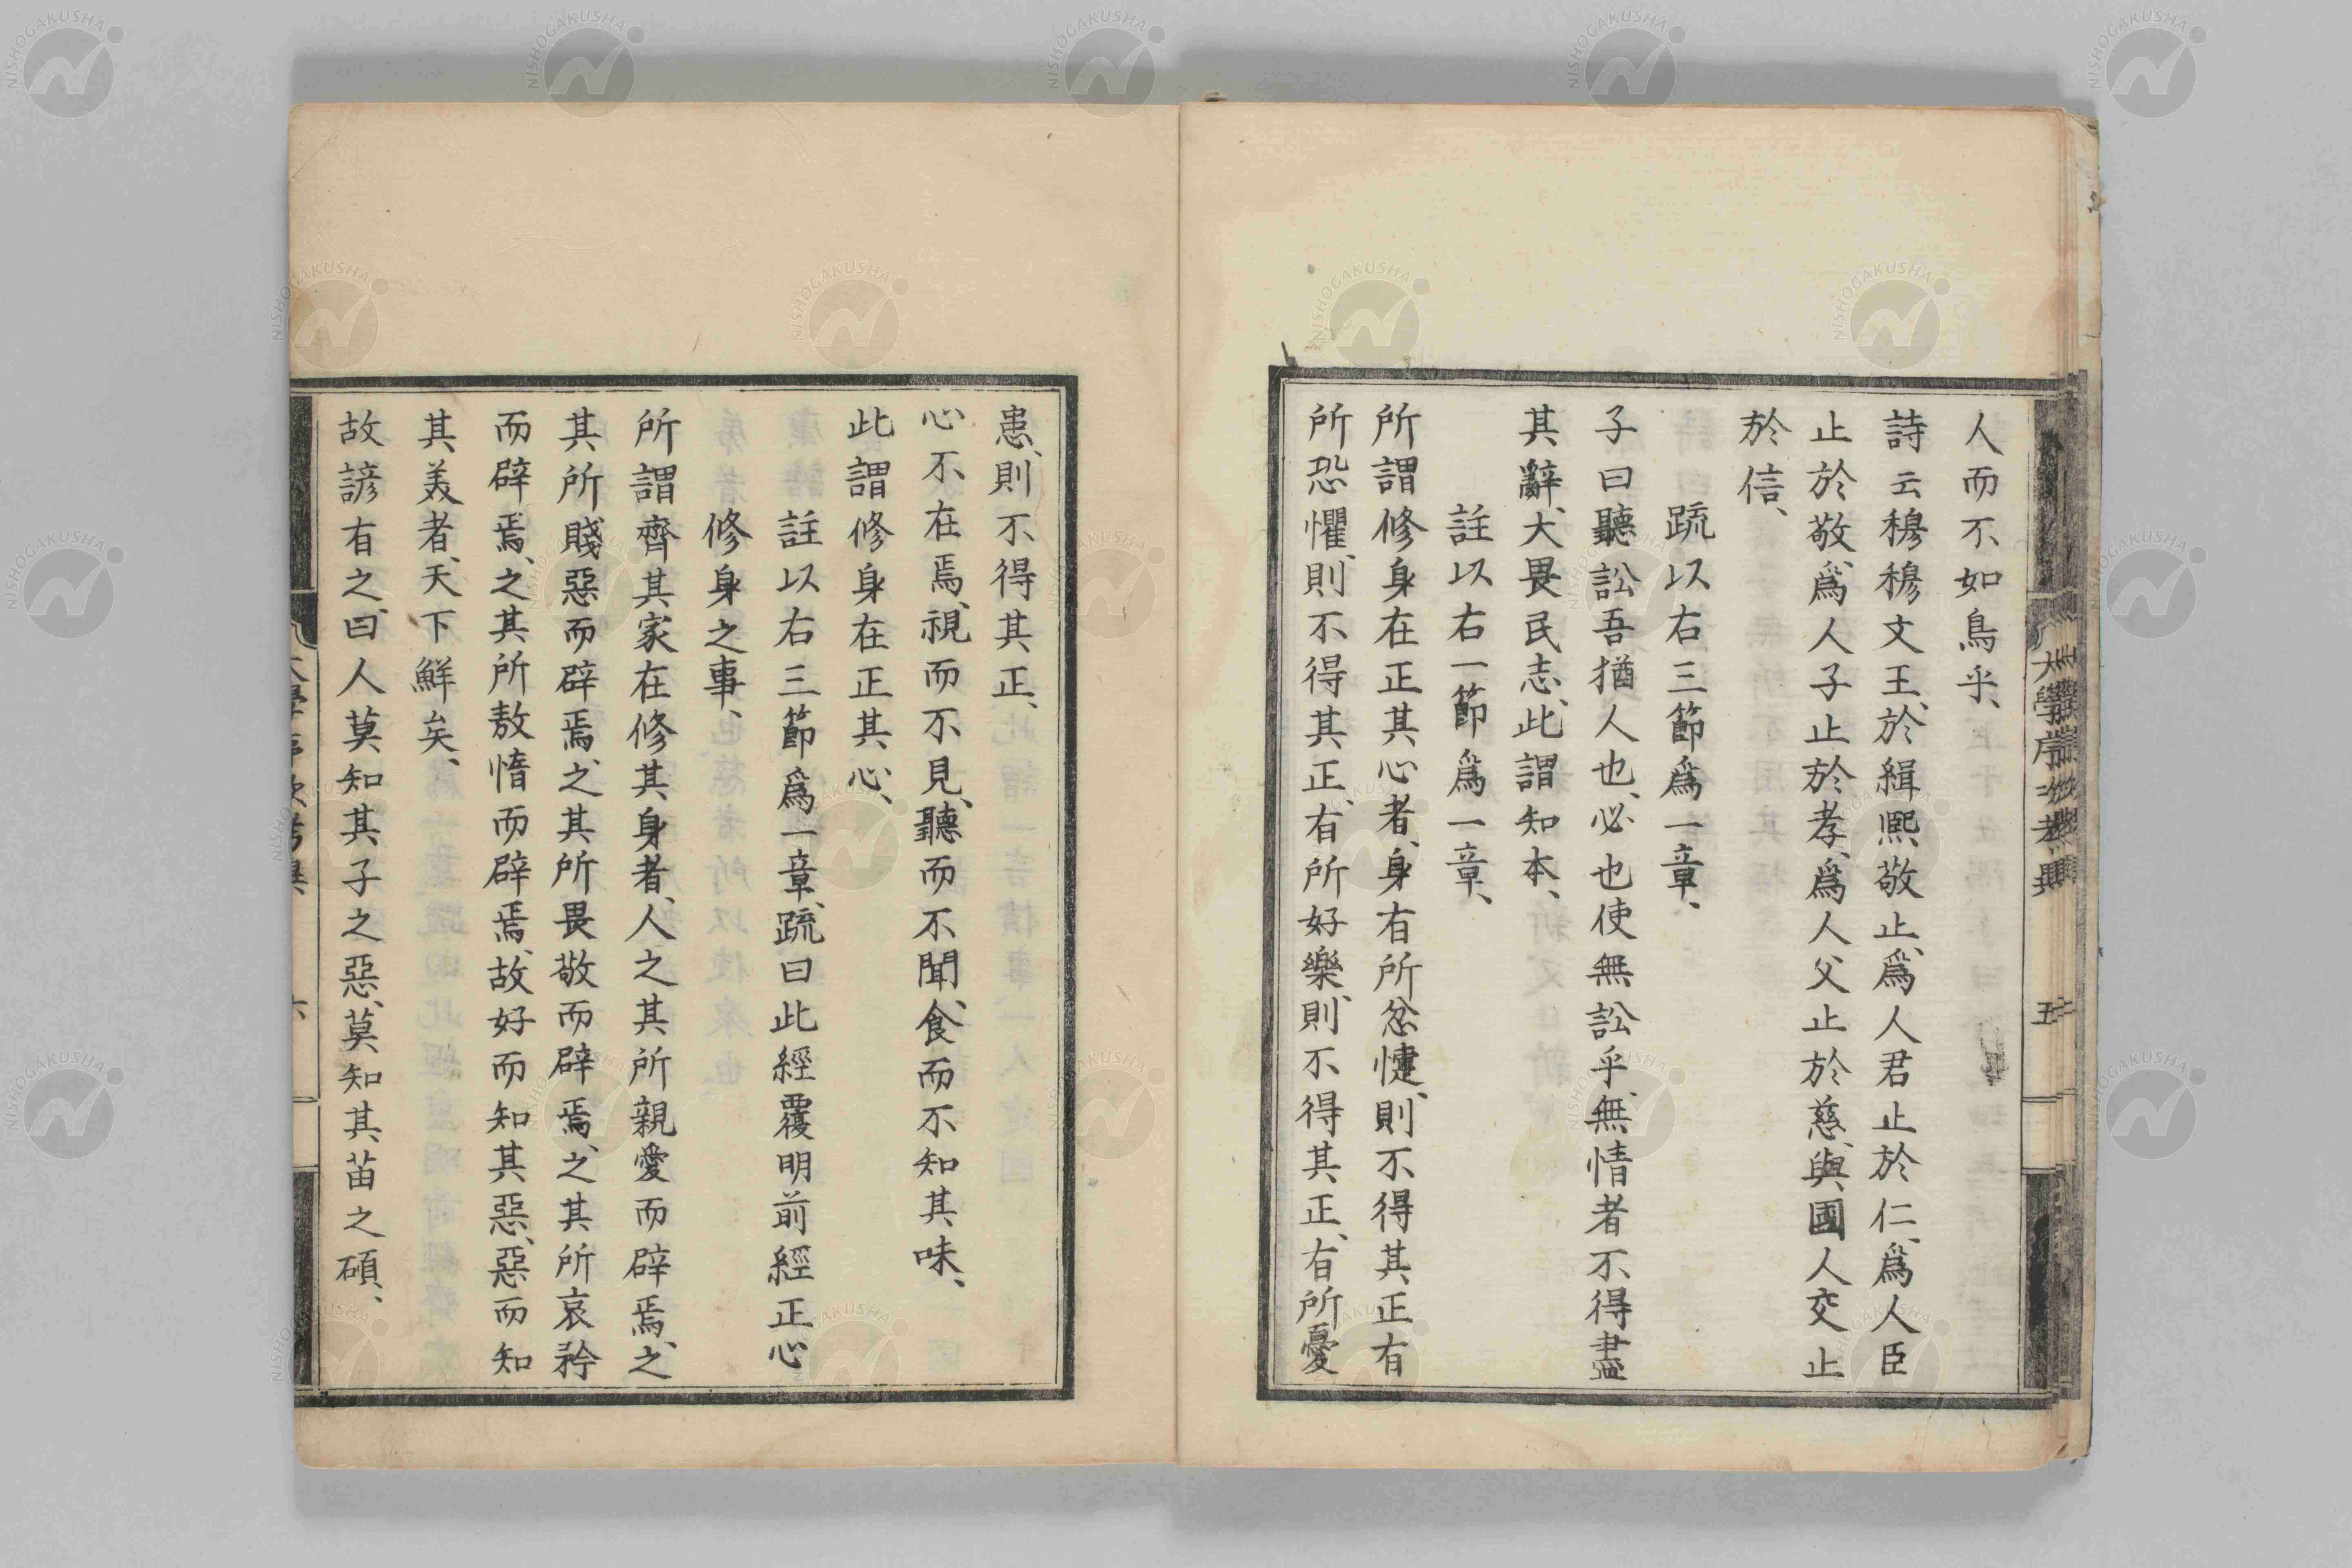 人而不如鳥乎、
詩云穆穆文王、於緝熙敬止、爲人君止於仁、爲人臣
止於敬、爲人子止於孝、爲人父止於慈、與國人交止
於信、
疏以右三節爲一章、
子曰聽訟吾猶人也、必也使無訟乎、無情者不得盡
其辭、大畏民志、此謂知本、
註以右一節爲一章、
所謂修身在正其心者、身有所忿懥、則不得其正、有
所恐懼、則不得其正、有所好樂、則不得其正、有所憂
患、則不得其正、
心不在焉、視而不見、聽而不聞、食而不知其味、
此謂修身在正其心、
註以右三節爲一章、疏曰此經覆明前經正心
修身之事、
所謂齊其家在修其身者、人之其所親愛而辟焉、之
其所賤惡而辟焉、之其所畏敬而辟焉、之其所哀矜
而辟焉、之其所敖惰而辟焉、故好而知其惡、惡而知
其美者、天下鮮矣、
故諺有之、曰人莫知其子之惡、莫知其苗之碩、
大學序次考異
五
大學序次考異
六
NISHOGAKUSHA